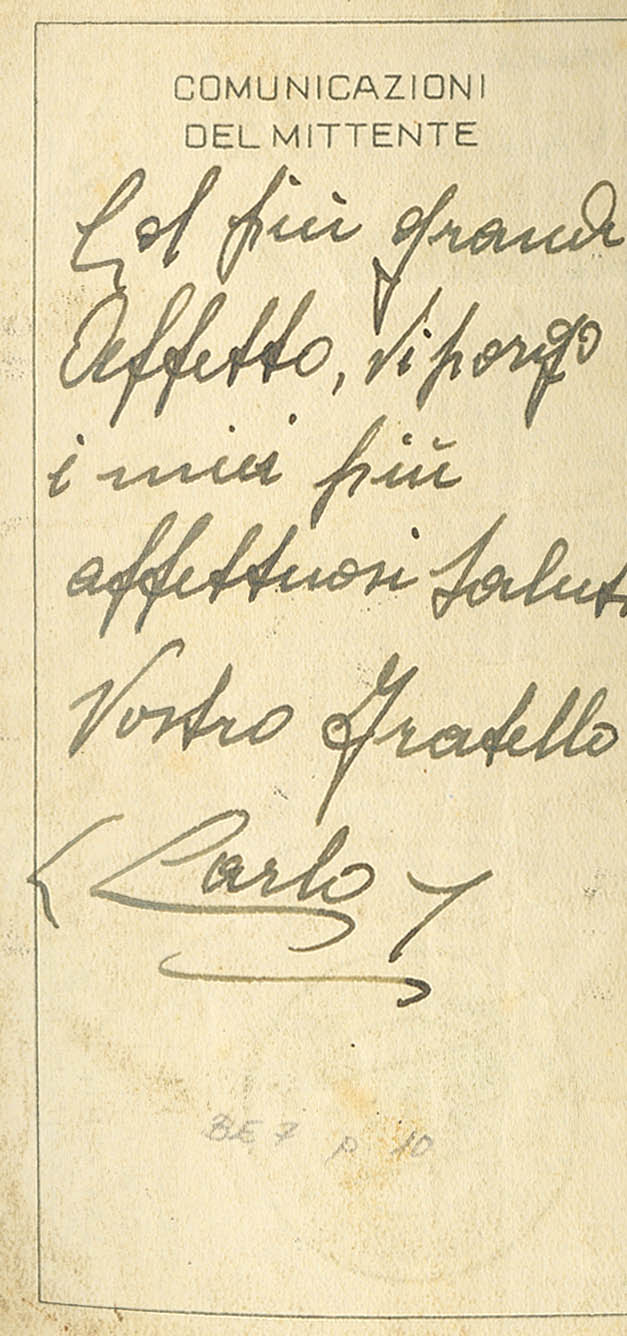 COMUNICAZIONI
DEL MITTENTE
Col più grande
Affetto, Vi porgo
i miei più
affettuosi saluti
Vostro Fratello
Carlo
BE 7 p 10